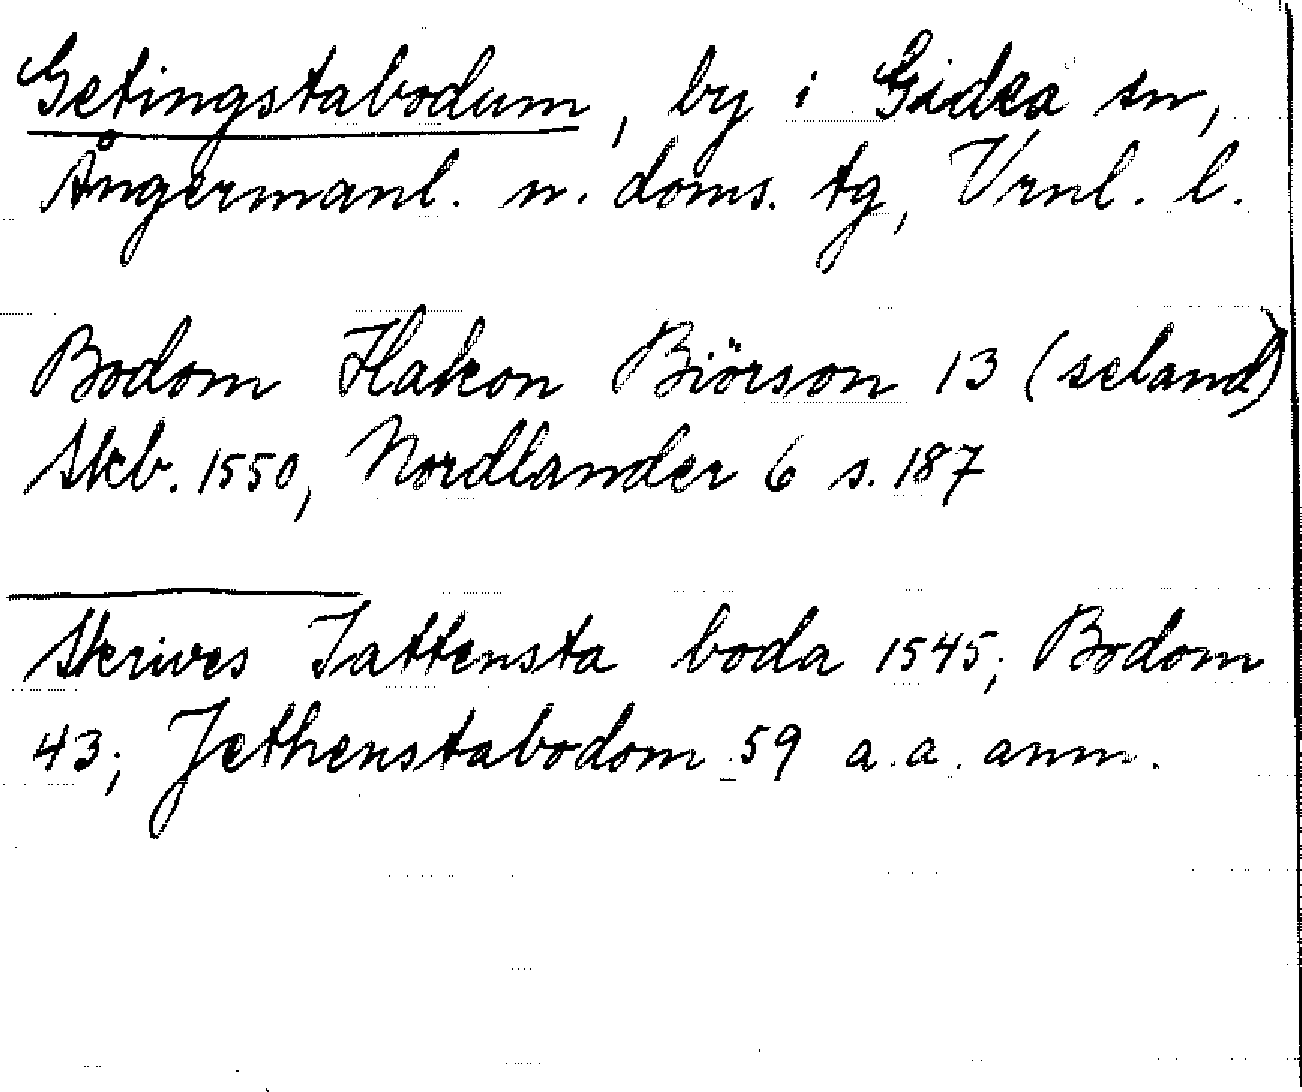 Getingstabodum, by i Gidea sn,
Ångermanl. n. doms. tg, Vrnl. l.
Bodom Hakon Biörson 13 (seland)
Skb. 1550, Nordlander 6 s. 187
Skrives Jattensta boda 1545; Bodom
43; Jethenstabodom 59 a.a. anm.